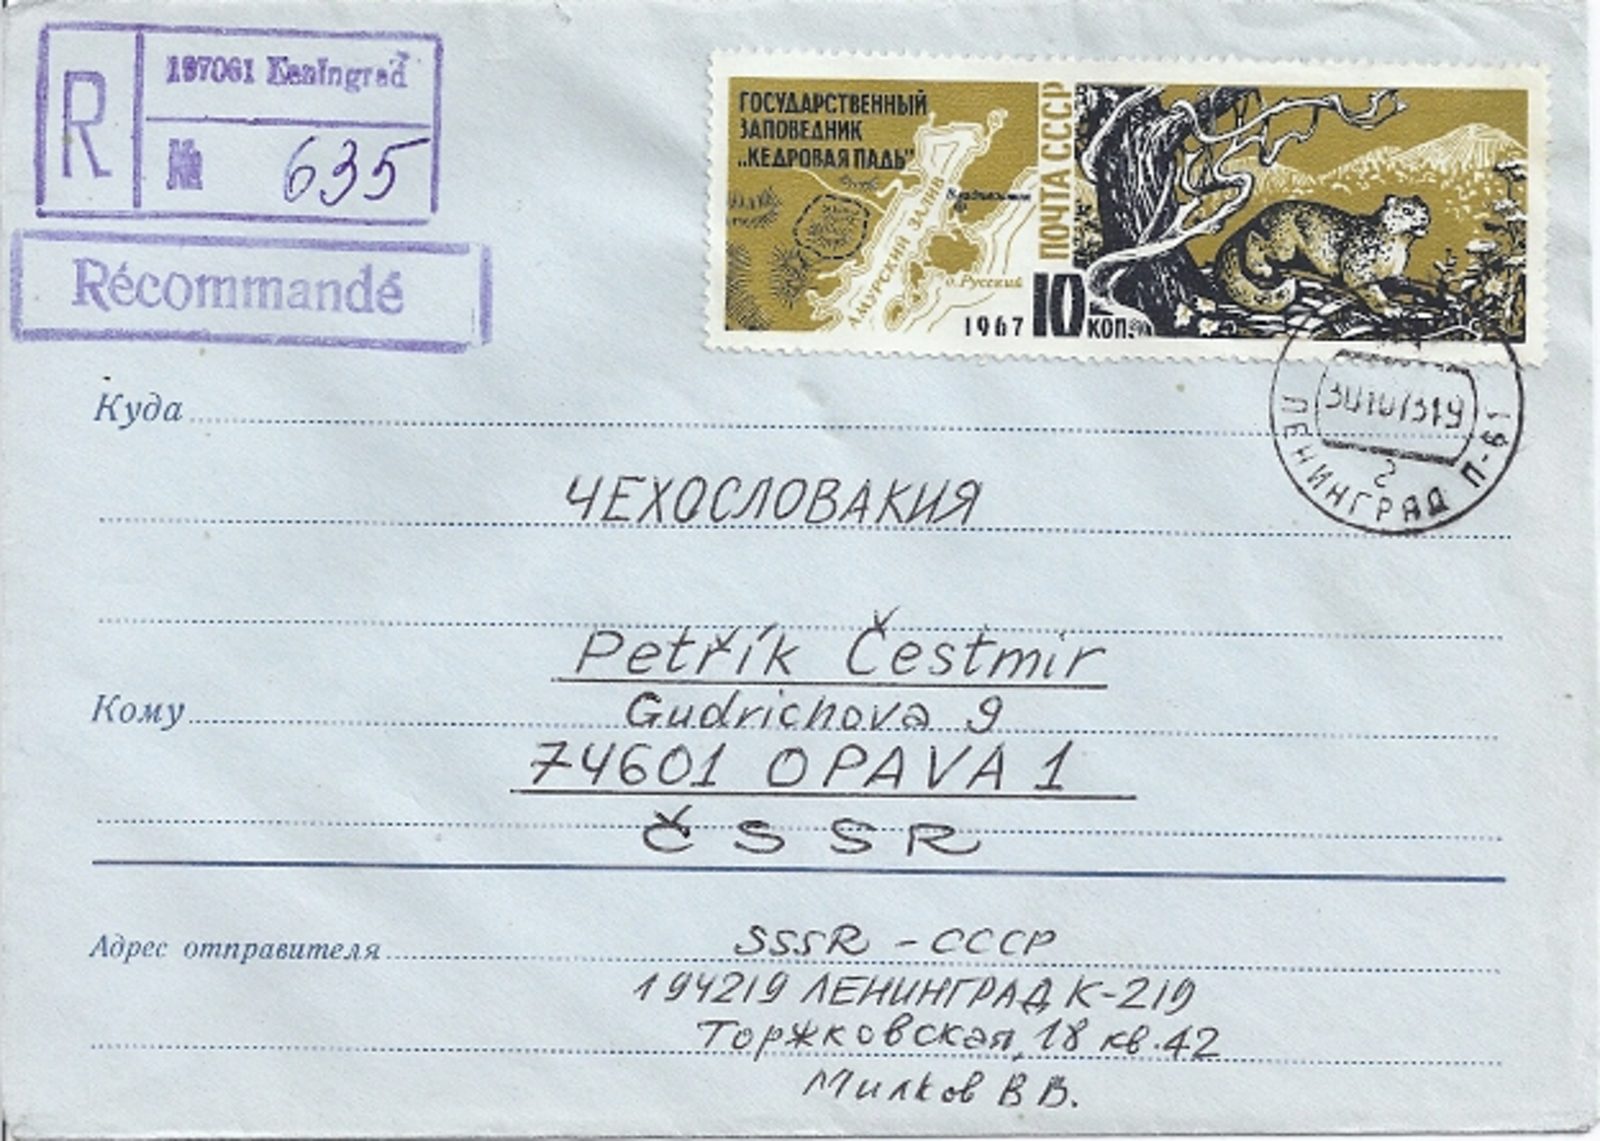 R
197061 Leningrad
№ 635
Récommandé
ГОСУДАРСТВЕННЫЙ
ЗАПОВЕДНИК
„КЕДРОВАЯ ПАДЬ"
АМУРСКИЙ ЗАЛИВ
Владивосток
о. Русский
1967
ПОЧТА СССР
10 КОП.
30107319
2
ЛЕНИНГРАД П-61
Куда
ЧЕХОСЛОВАКИЯ
Petřík Čestmir
Кому
Gudrichova 9
74601 OPAVA 1
ČSSR
Адрес отправителя
SSSR - СССР
194219 ЛЕНИНГРАД К-219
Торжковская, 18 кв. 42
Милков В В.